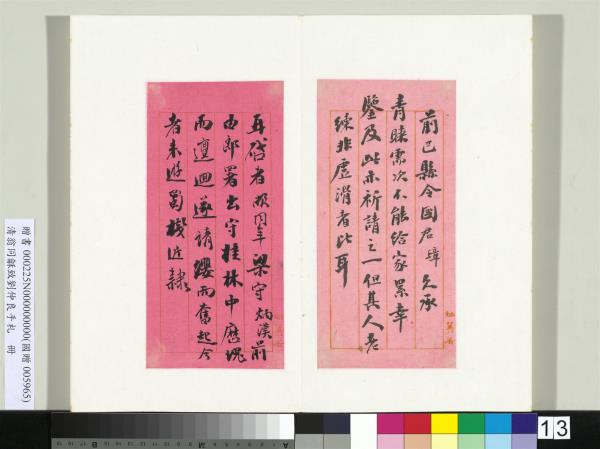 前巴縣令國君璋久承
青睞需次不能給家累幸
鑒及此亦祈請之一但其人老
練非虛滑者比耳
再啓者敝同年梁守炳漢前
由郎署出守桂林中歷塊
而邅迴遂請纓而奮起今
者來游蜀棧近隸
贈書 000225N000000000(國贈 005965)
清翁同龢致劉仲良手札 冊
13